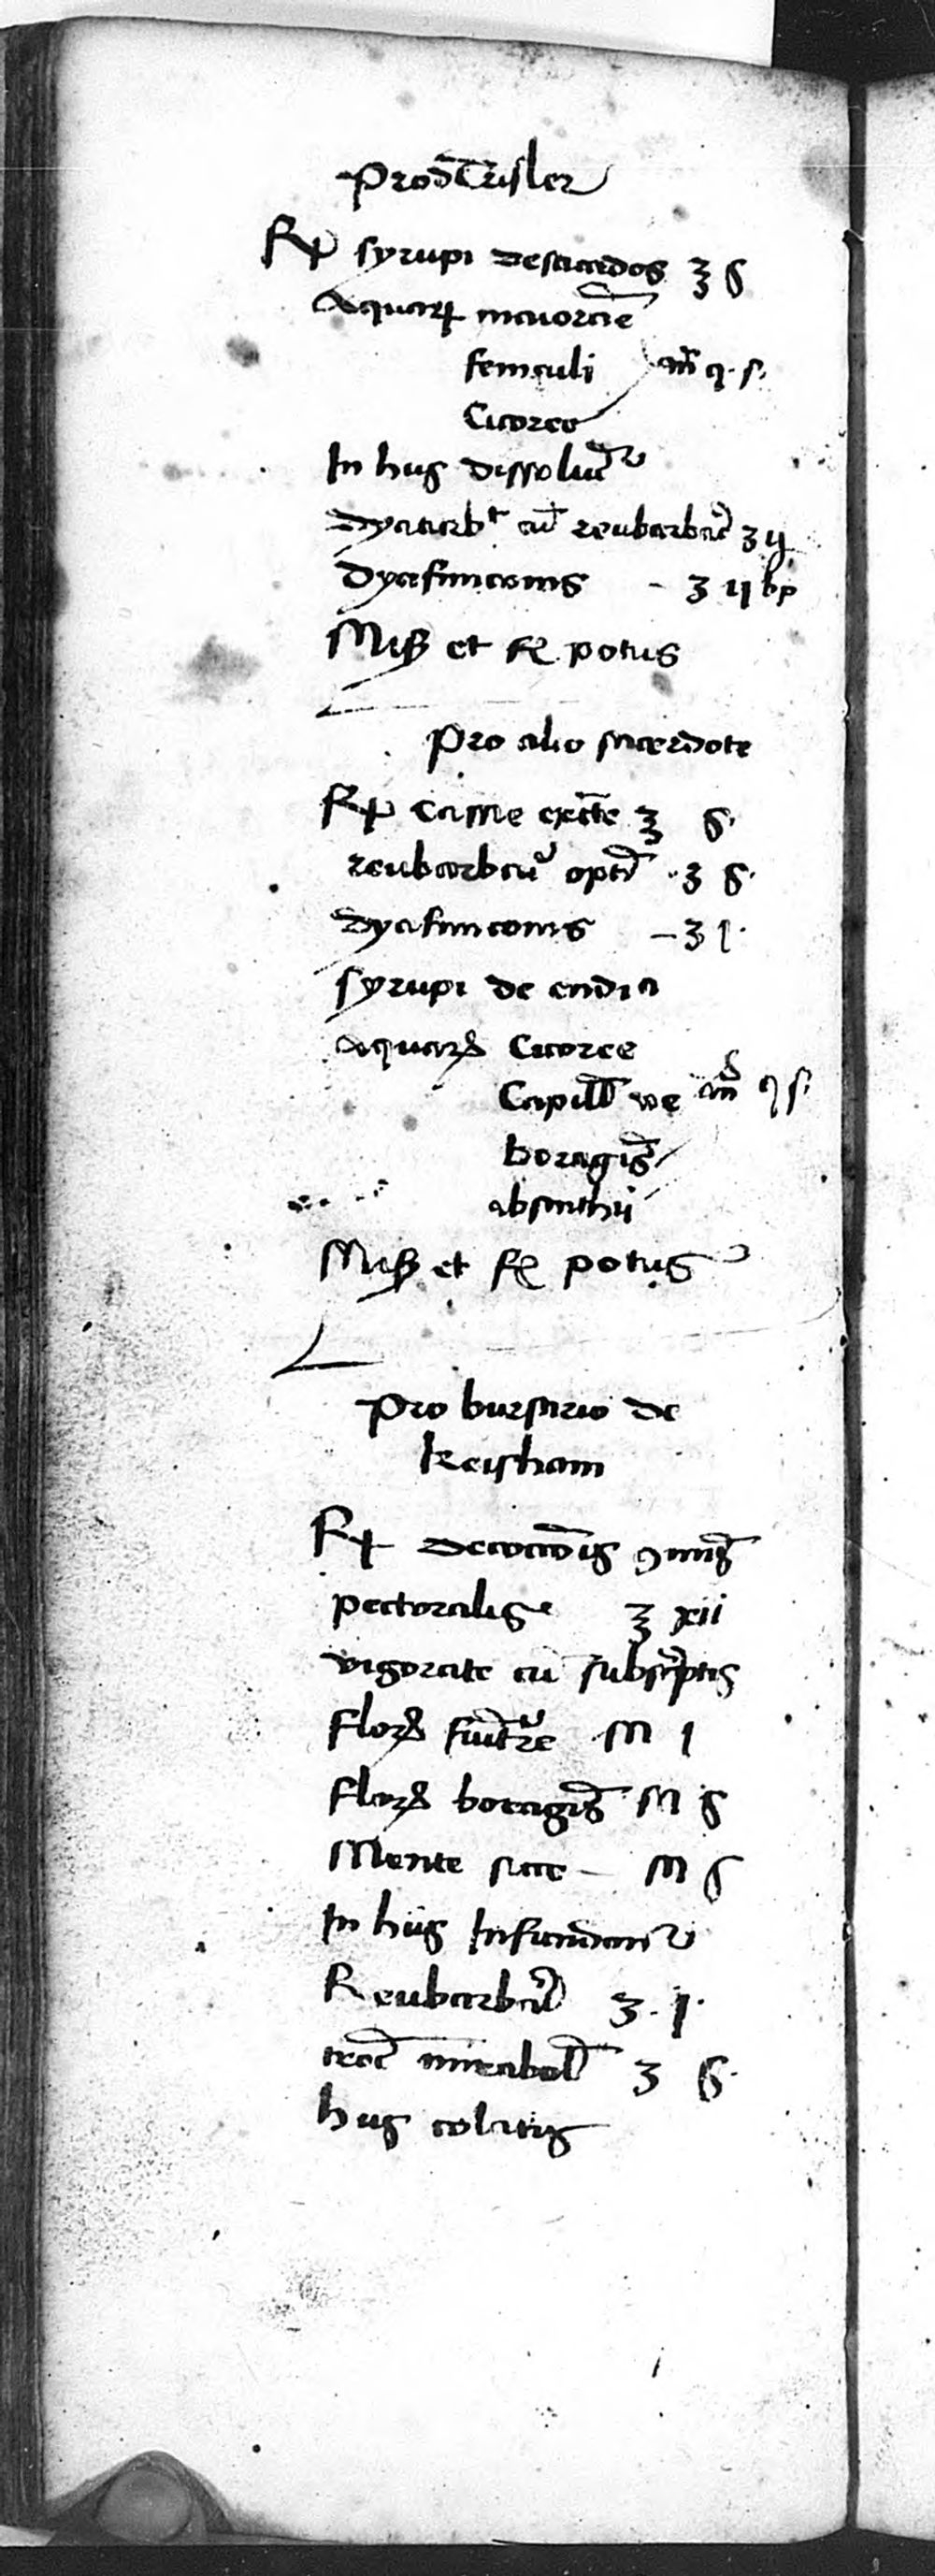 Pro d Crisler
Rp syrupi de sticados ℥ ß
Aquarum maiorane
feniculi an q. s.
Cicoree
In hijs dissoluitur
Dyacarth cum reubarbaro ʒ ij
Dyafiniconis - ʒ ij
Misce et fiat potus
Pro alio sacerdote
Rp Cassie extracte ℥ ß.
reubarbari optimi .ʒ ß.
dyafiniconis - ʒ I.
syrupi de endivia
Aquarum Cicoree
Capilli ve an q s.
boraginis
absinthii
Misce et fiat potus
Pro bursario de
keisham
Rp decoctionis communis
pectoralis ℥ xii
vigorate cum subscriptis
florum M I
florum boraginis M ß
Mente sicce - M ß
In hijs Infundantur
Reubarbari ʒ. I.
mirabol ʒ ß.
hijs colatis